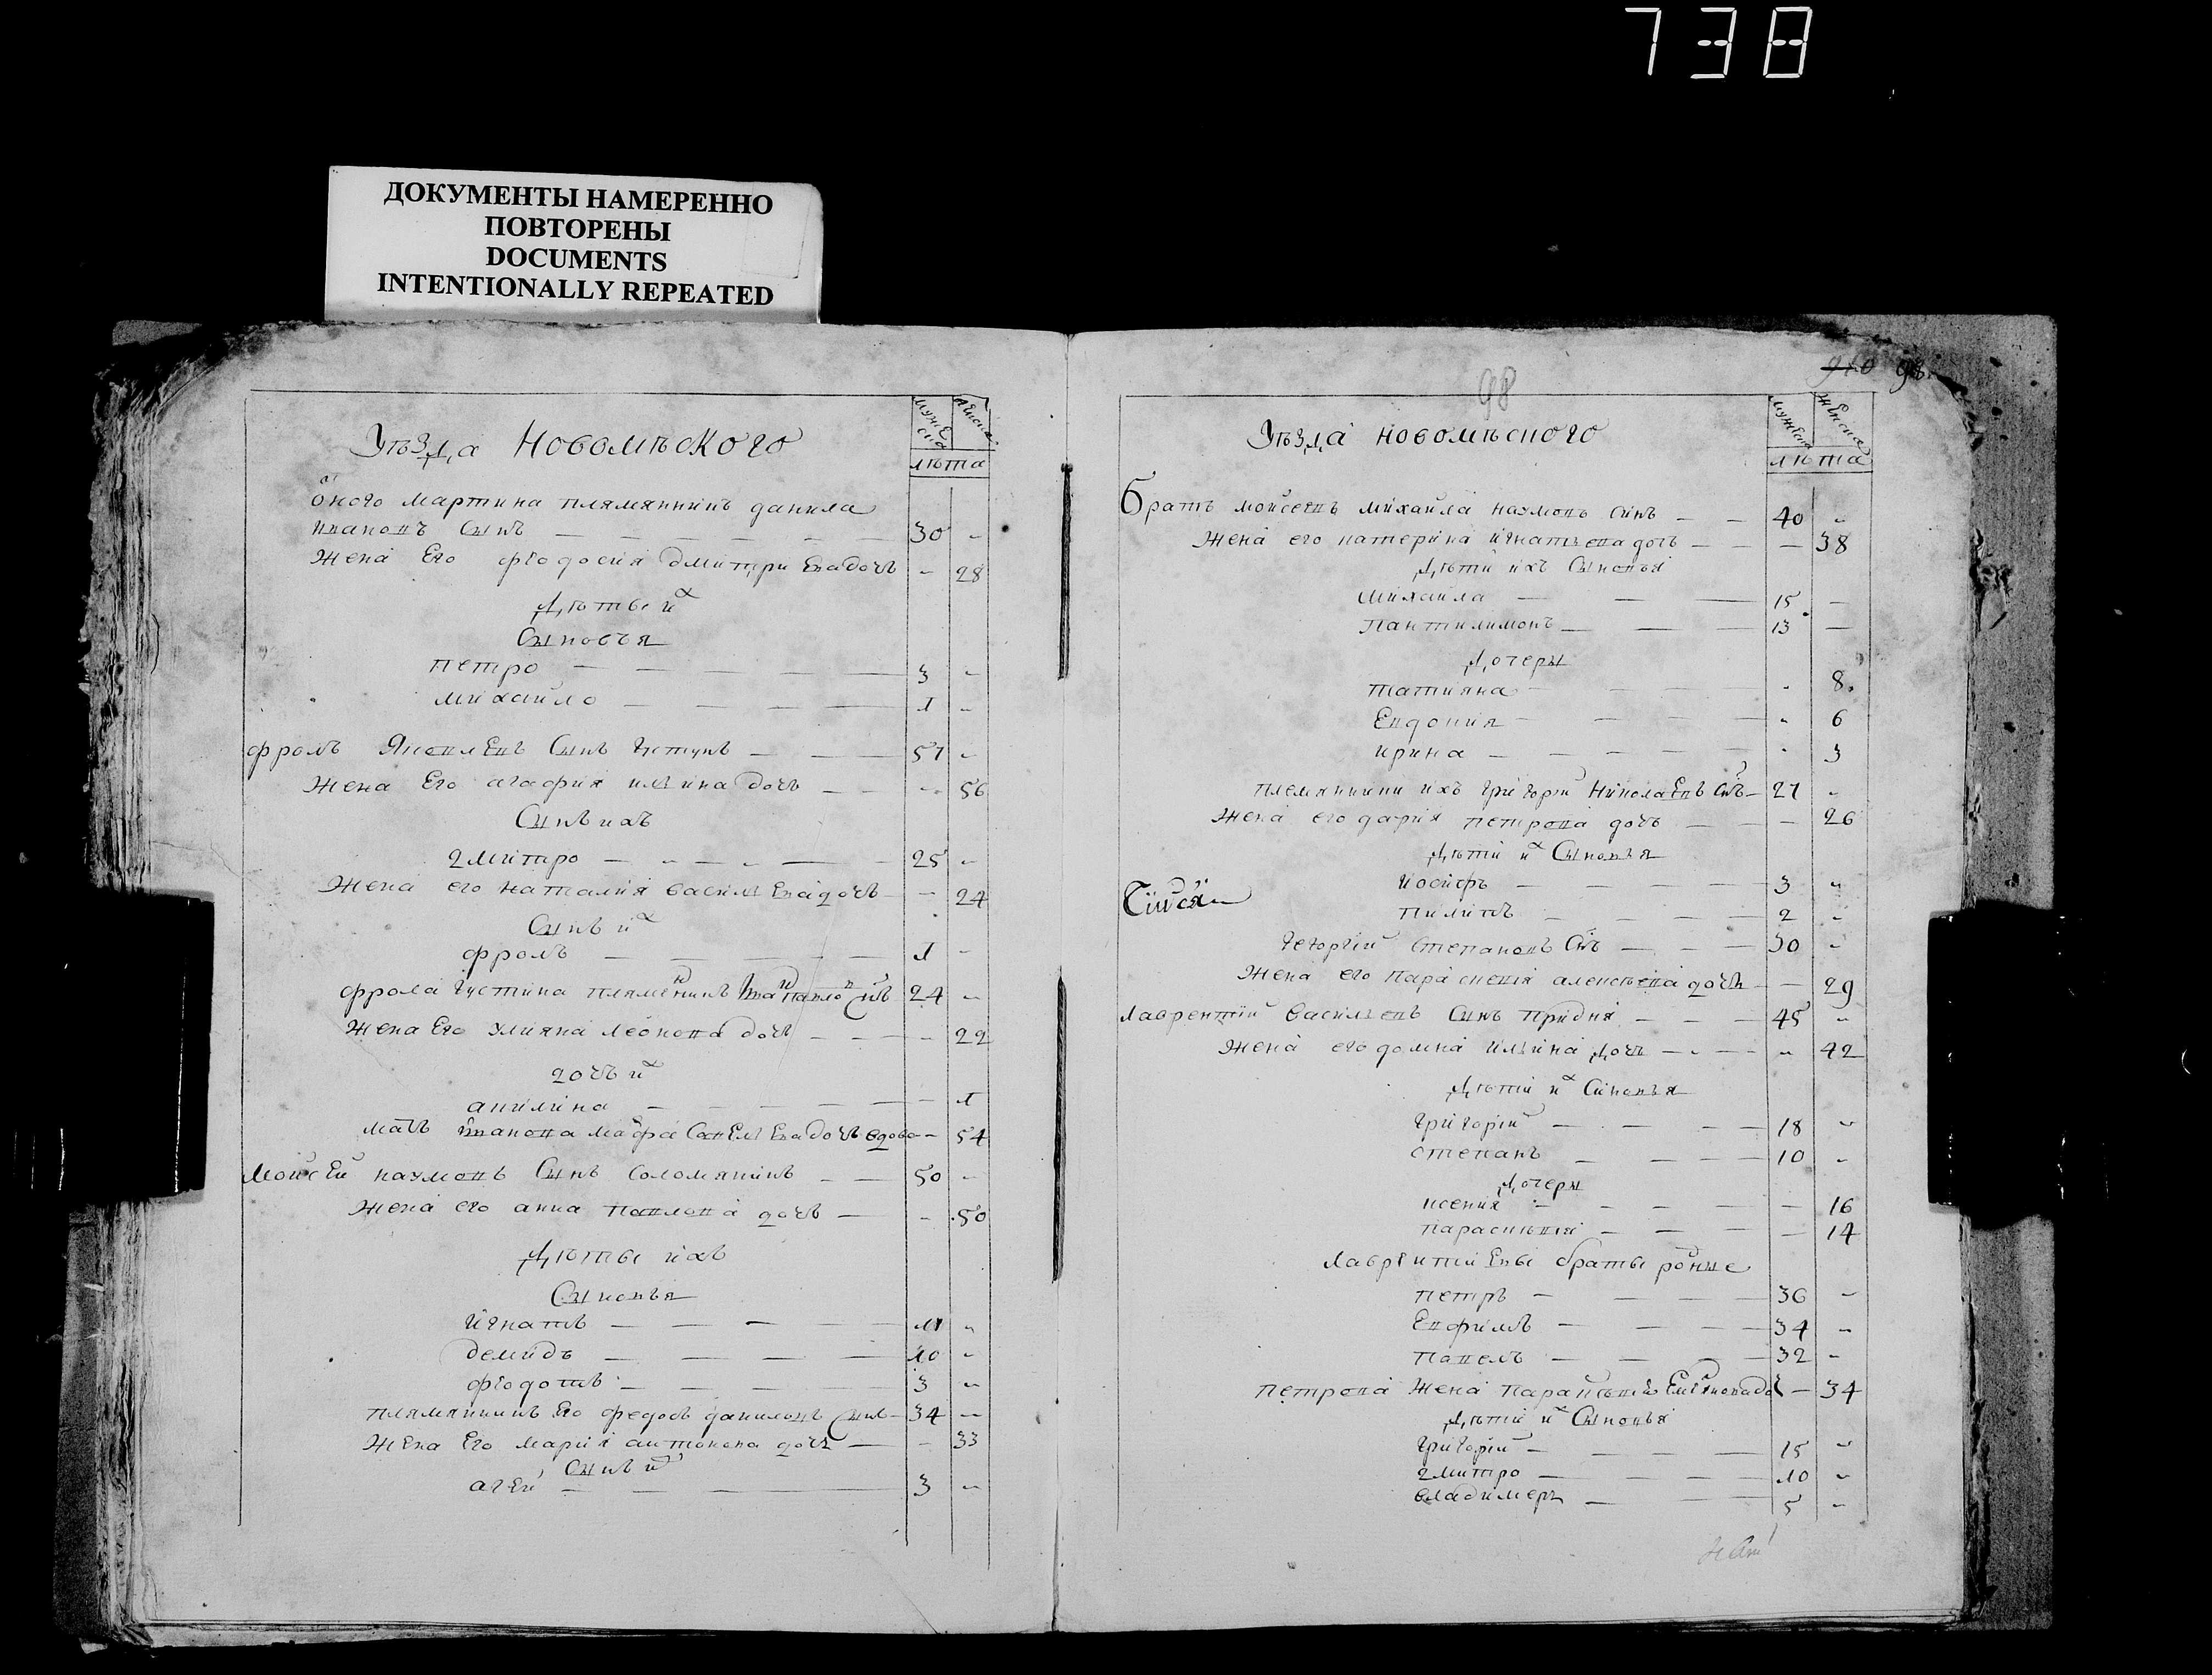 738
ДОКУМЕНТЫ НАМЕРЕННО
ПОВТОРЕНЫ
DOCUMENTS
INTENTIONALLY REPEATED
Уѣзда Новомѣского
мужеска
женска
лѣта
оного мартина плямянникъ данила
ивановъ Сынъ 30
Жена Его феодосия дмитриева дочъ 28
Дѣтьи их
Сыновья
петро 3
михайло 1
фролъ Яковлевъ Сынъ 57
Жена Его агафия илина дочъ 56
Сынъ ихъ
дмитро 25
Жена его наталия василева дочъ 24
Сынъ их
фролъ 1
фрола густина племенникъ Сынъ 24
Жена Его улияна леонова дочъ 22
дочъ их
ангилина 1
мать иванова мавра Савелева дочъ вдова 54
Мойсей наумовъ Сынъ соломянинъ 50
Жена его анна павлова дочъ 50
Дѣтьи ихъ
Сыновья
игнатъ 11
демидъ 10
феодотъ 3
плямянникъ Его федосъ даниловъ Сынъ 34
Жена Его мария антонова дочъ 33
Сынъ их
агей 3
98
98
Уѣзда новомѣского
мужеска
женска
лѣта
Братъ мойсеевъ михайла наумовъ синъ 40
Жена его катерина игнатьева дочъ 38
Дѣти ихъ Сыновья
михайла 15
пантилимонъ 13
Дочеры
татияна 8
Евдокия 6
ирина 3
племянники ихъ григорий Николаевъ Снъ 27
Жена его дария петрова дочъ 26
Дѣти их Сыновья
иосифъ 3
пилипъ 2
георгий степановъ Снъ 30
Жена его параскевия алексѣева дочъ 29
Лаврентий василевъ Синъ придня 45
Жена его домна илина дочъ 42
Дѣти их Синовья
григорий 18
степанъ 10
Дочеры
ксения 16
параскевия 14
лаврентиевы браты родные
петръ 36
Евфимъ 34
павелъ 32
петрова Жена 34
Дѣти их Сыновья
григорий 15
дмитро 10
владимеръ 5